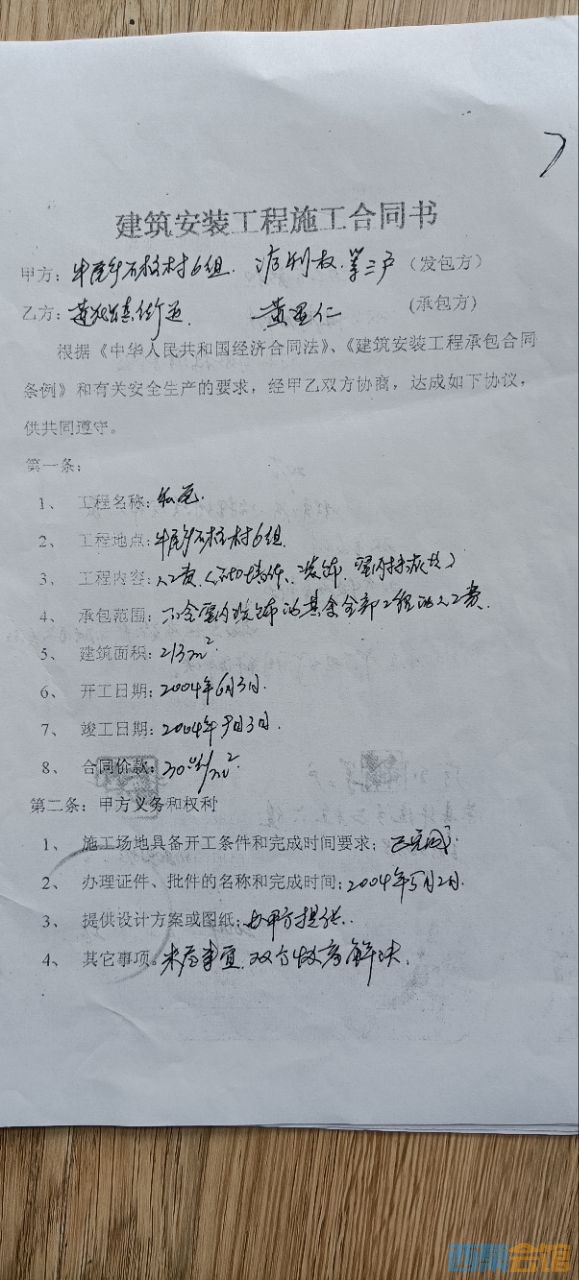 建筑安装工程施工合同书
甲方：牛尾乡石柱村6组. 权. 等三户（发包方）
乙方： 镇街道. 黄 仁 （承包方）
根据《中华人民共和国经济合同法》、《建筑安装工程承包合同
条例》和有关安全生产的要求，经甲乙双方协商，达成如下协议，
供共同遵守。
第一条：
1、 工程名称：私宅.
2、 工程地点：牛尾乡石柱村6组.
3、 工程内容：人工费
4、 承包范围：不含室内装饰的其余全部工程的人工费.
5、 建筑面积：213m².
6、 开工日期：2004年6月3日.
7、 竣工日期：2004年9月3日.
8、 合同价款： /m².
第二条：甲方义务和权利
1、 施工场地具备开工条件和完成时间要求：已完成.
2、 办理证件、批件的名称和完成时间：2004年5月2日.
3、 提供设计方案或图纸：由甲方提供.
4、 其它事项。未尽事宜.双方协商解决.
西票会馆